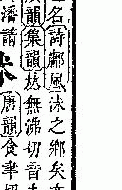 名詩鄘風沬之鄉矣
韻集韻𠀤無沸切音
潘請
唐韻食聿切